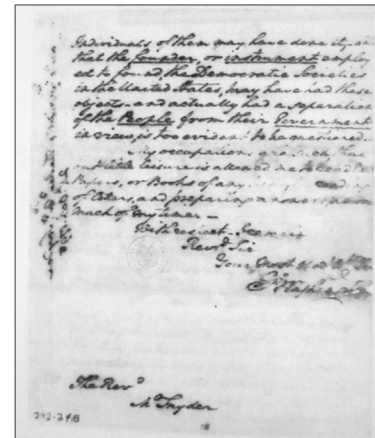 Individuals of them may have done it, and
that the founder, or instrument employ
ed to found, the Democratic Societies
in the United States, may have had these
objects—and actually had a separation
of the People from their Government
in view, is too evident to be questioned.
My occupations are such that
but little leisure is allowed me to read
Papers, or Books of any
of letters, and preparing answers,
much of my time.—
With respect, I remain
Revd. Sir
Your Most Obedt.
The Revd.
Mr Snyder
242-243